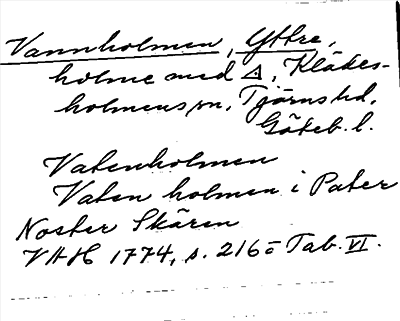 Vannholmen, Yttre,
holme med △, Klädes-
holmens sn, Tjörns hd,
Göteb. l.
Vatenholmen
Vaten holmen i Pater
Noster Skären
VAH 1774, s. 216 o Tab. VI.